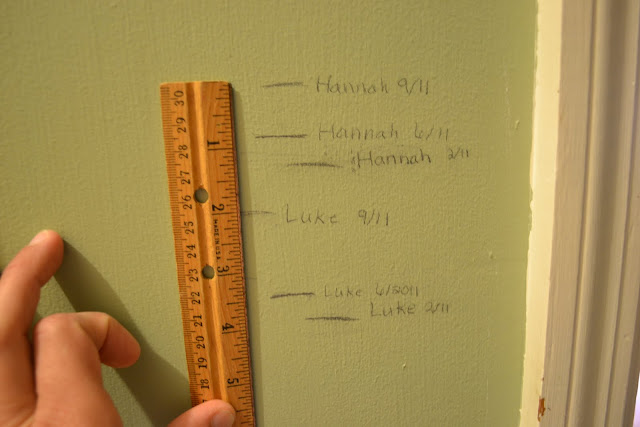 Hannah 9/11
Hannah 6/11
Hannah 2/11
Luke 9/11
Luke 6/2011
Luke 2/11
30
29
28
27
26
25
24
23
22
21
20
19
18
1
2
3
4
5
MADE IN U.S.A.